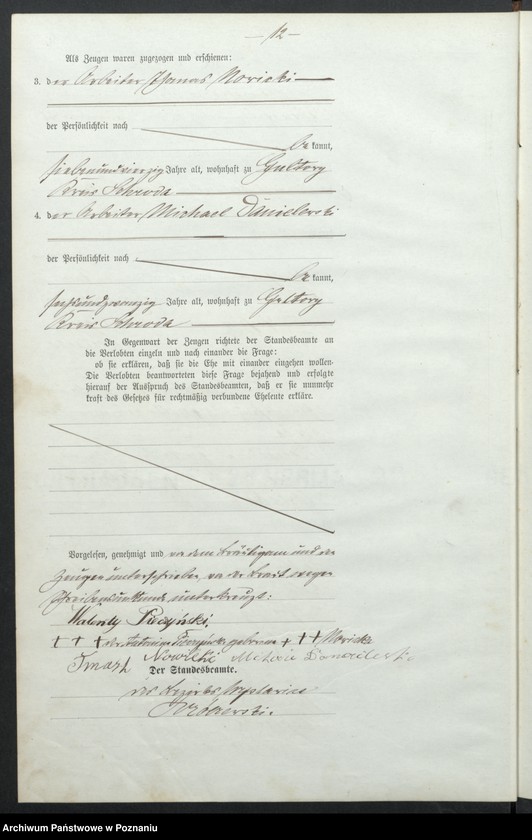 — 12 —
Als Zeugen waren zugezogen und erschienen:
3. der Arbeiter Thomas Nowicki
der Persönlichkeit nach
be kannt,
siebenundvierzig Jahre alt, wohnhaft zu Gultowy
Kreis Schroda
4. der Arbeiter Michael Danielewski
der Persönlichkeit nach
be kannt,
sechsundzwanzig Jahre alt, wohnhaft zu Gultowy
Kreis Schroda
In Gegenwart der Zeugen richtete der Standesbeamte an
die Verlobten einzeln und nach einander die Frage:
ob sie erklären, daß sie die Ehe mit einander eingehen wollen.
Die Verlobten beantworteten diese Frage bejahend und erfolgte
hierauf der Ausspruch des Standesbeamten, daß er sie nunmehr
kraft des Gesetzes für rechtmäßig verbundene Eheleute erkläre.
Vorgelesen, genehmigt und von dem Bräutigam und den
Zeugen unterschrieben, von der Braut wegen
Schreibensunkunde unterkreuzt:
Walenty
+ + + der geborene + + + Nowicka
Tmasz Nowicki
Der Standesbeamte.